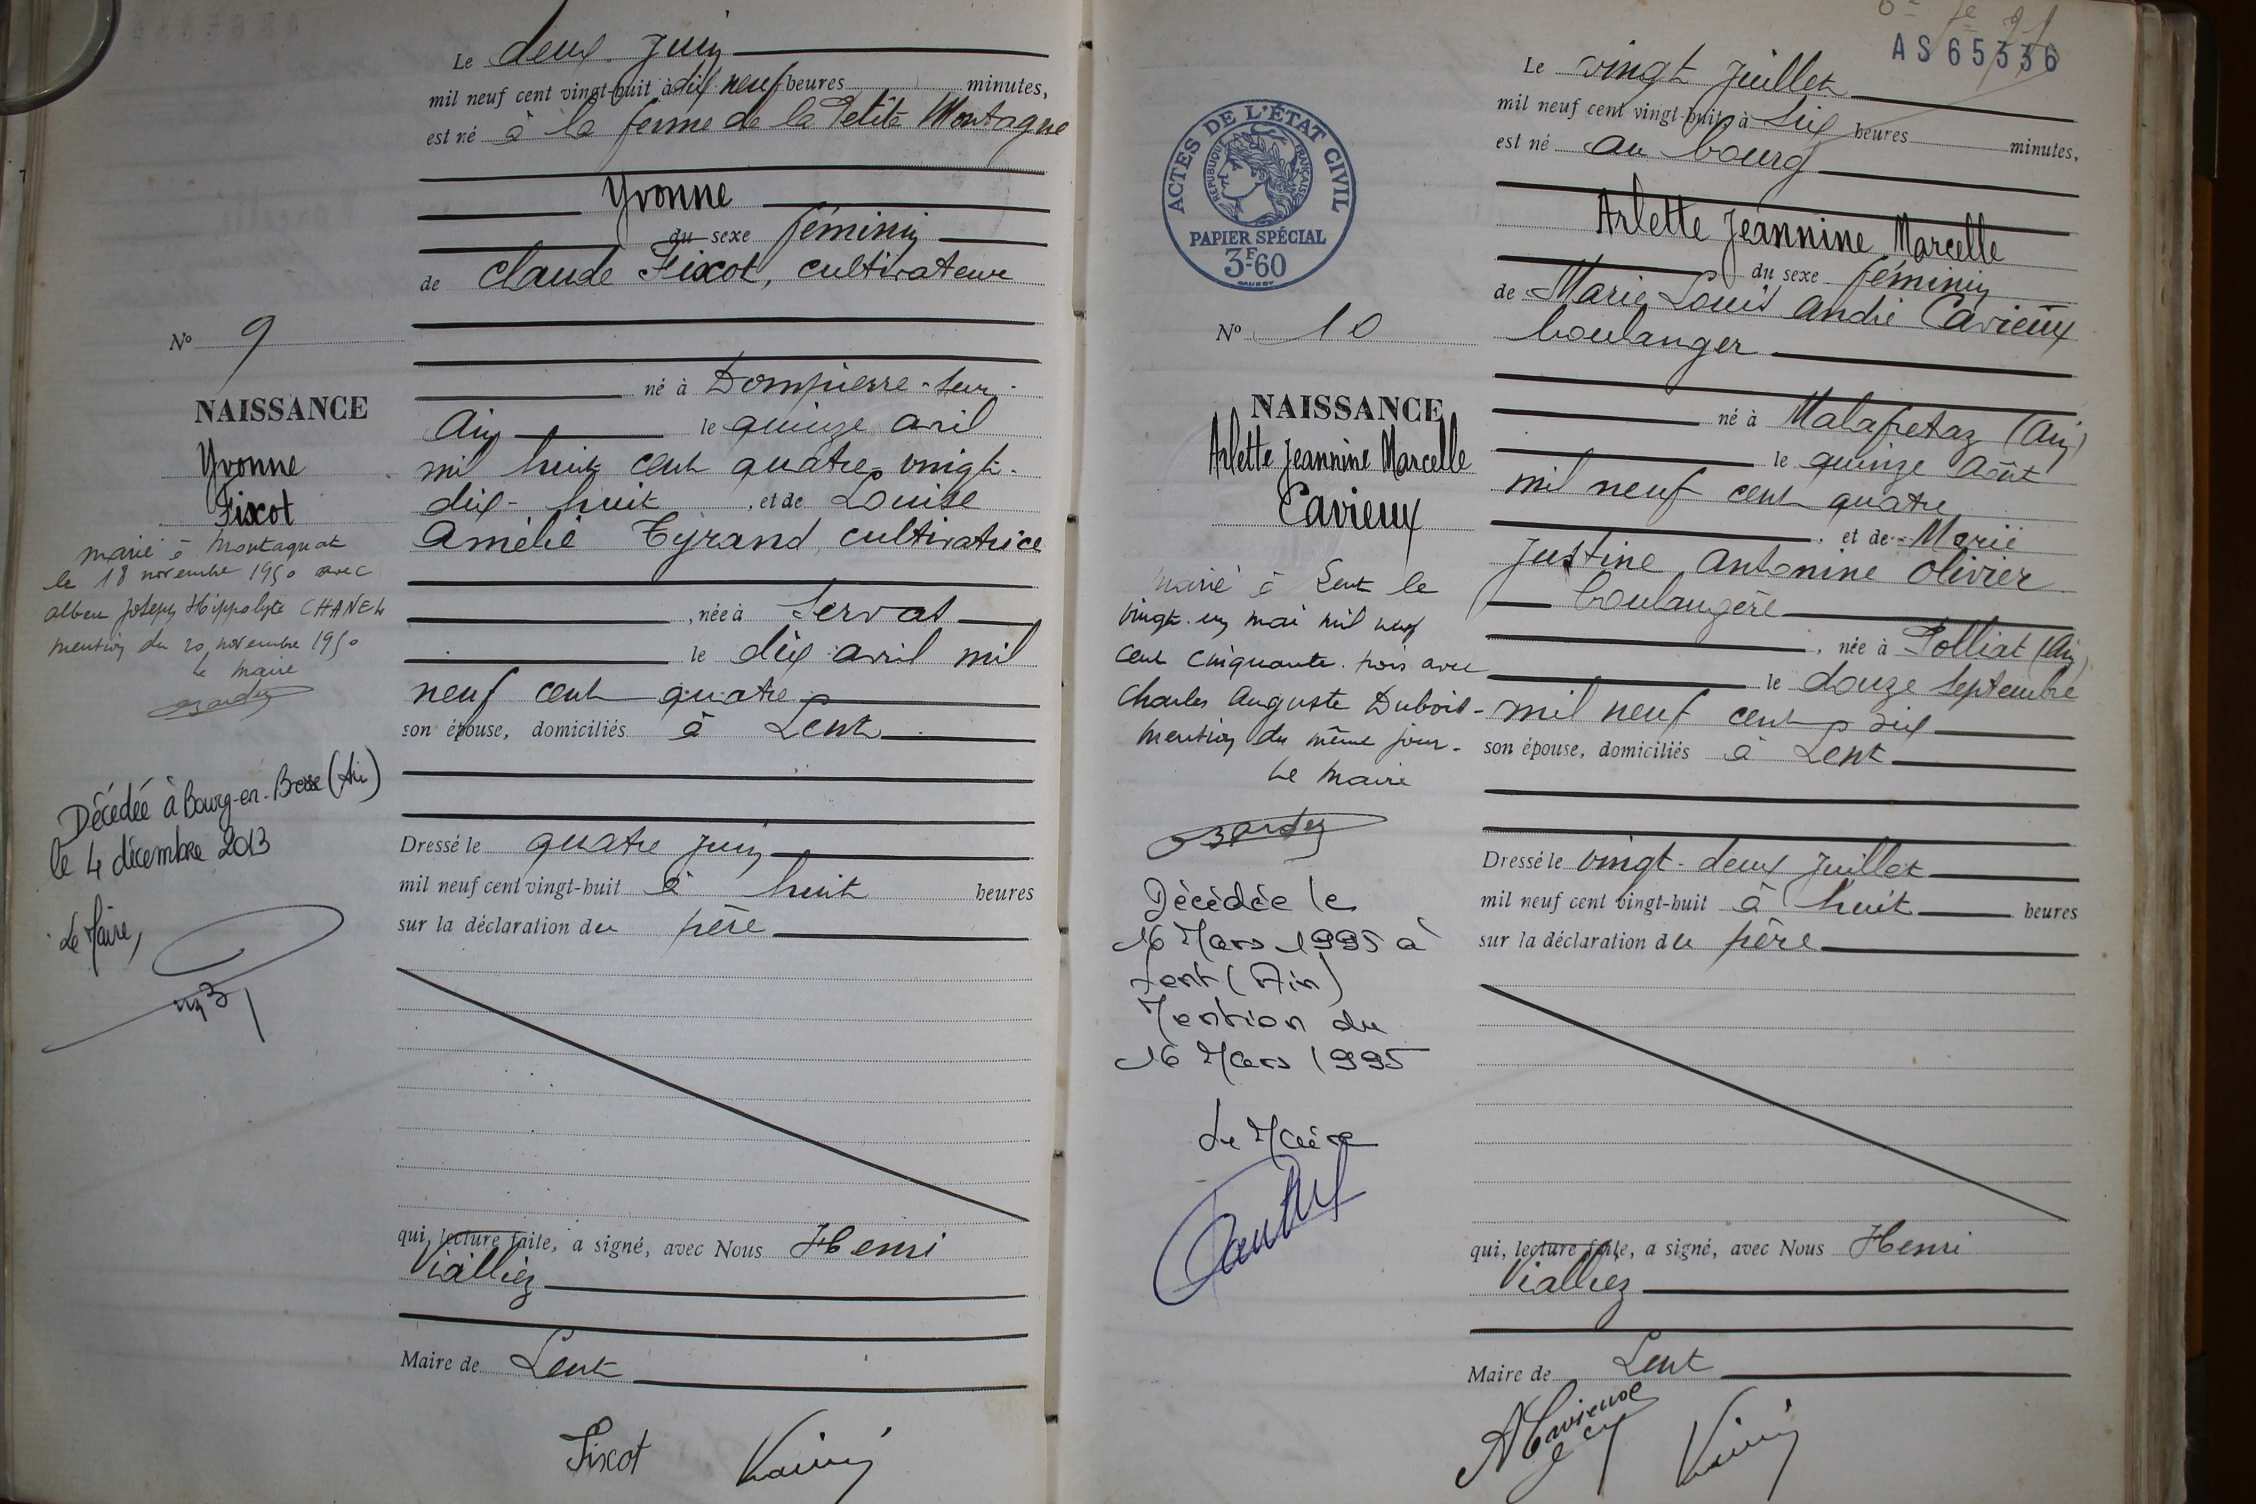 Le deux Juin
mil neuf cent vingt-huit à dix neuf heures minutes,
est né à la ferme de la Petite Montagne
Yvonne
du sexe féminin
de Claude Fixot, cultivateur
né à Dompierre-sur-
Ain le quinze avril
mil huit cent quatre vingt-
dix-huit, et de Louise
Amélie Tyrand, cultivatrice
, née à Servas
le dix avril mil
neuf cent quatre
son épouse, domiciliés à Lent
Dressé le quatre Juin
mil neuf cent vingt-huit à huit heures
sur la déclaration du père
qui, lecture faite, a signé, avec Nous Henri
Vialliez
Maire de Lent
Fixot
No 9
NAISSANCE
Yvonne
Fixot
marié à Montagnat
le 18 novembre 1950 avec
Joseph Hippolyte CHANEL
mention du 20 novembre 1950
Le maire
Décédée à Bourg-en-Bresse (Ain)
le 4 décembre 2013
Le Maire,
AS 65336
Le vingt Juillet
mil neuf cent vingt-huit à six heures minutes,
est né au bourg
Arlette Jeannine Marcelle
du sexe féminin
de Marie Louis André Cavieux
boulanger
né à Malafretaz (Ain)
le quinze Août
mil neuf cent quatre
, et de Marie
Justine Antonine Olivier
boulangère
, née à Polliat (Ain)
le douze Septembre
mil neuf cent six
son épouse, domiciliés à Lent
Dressé le vingt-deux Juillet
mil neuf cent vingt-huit à huit heures
sur la déclaration du père
qui, lecture faite, a signé, avec Nous Henri
Vialliez
Maire de Lent
ACTES DE L'ÉTAT CIVIL
RÉPUBLIQUE FRANÇAISE
PAPIER SPÉCIAL
3F.60
No 10
NAISSANCE
Arlette Jeannine Marcelle
Cavieux
marié à Lent le
vingt-un mai mil neuf
cent cinquante-trois avec
Charles Auguste Dubois-
mention du même jour-
Le Maire
Décédée le
16 Mars 1995 à
Lent (Ain)
Mention du
16 Mars 1995
Le Maire